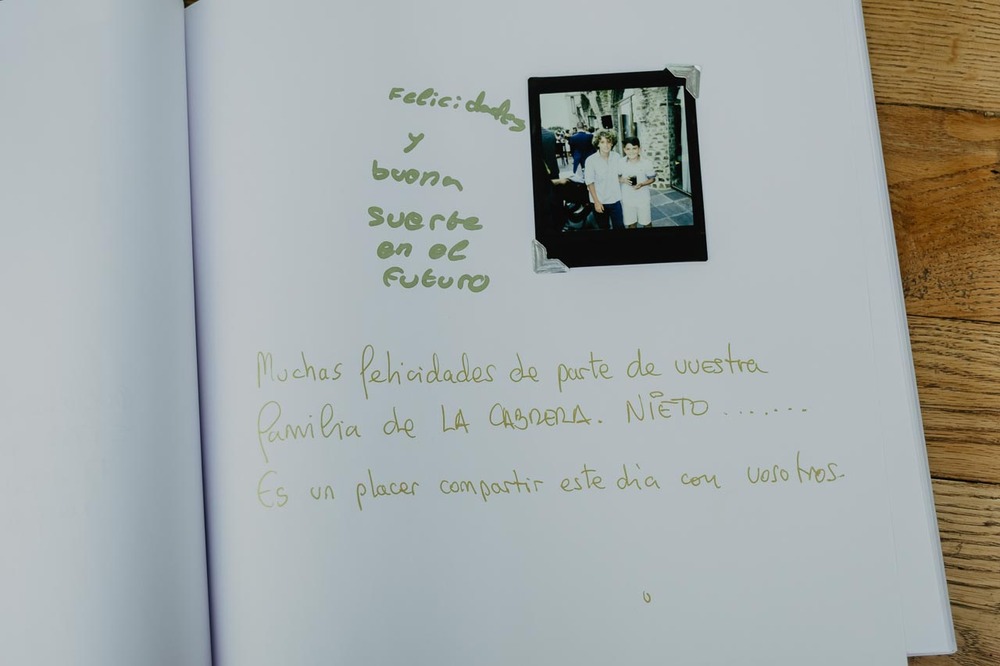 Felicidades
y
buena
suerte
en el
Futuro
Muchas felicidades de parte de vuestra
familia de LA CABRERA. NIETO .......
Es un placer compartir este dia con vosotros.